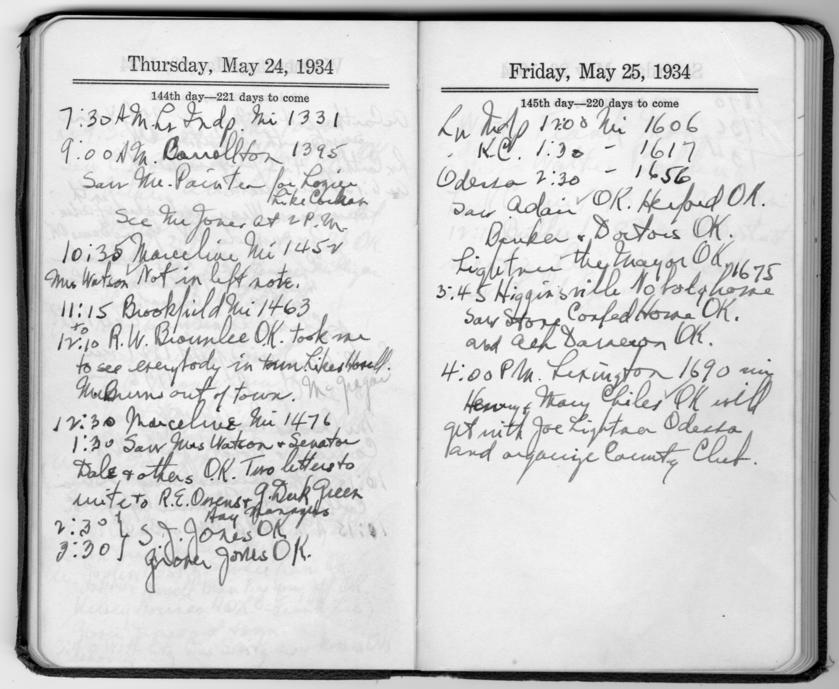 Thursday, May 24, 1934
144th day—221 days to come
7:30 A.M. Lv Indp. Mi 1331
9:00 A.M. Carrollton 1395
Saw Mr. Painter for Lozier
Like Cochran
See Mr Jones at 2 P.M.
10:35 Marceline Mi 1452
Mrs Watson Not in left note.
11:15 Brookfield Mi 1463
to
12:10 R.W. Brownlee OK. took me
to see everybody in town Likes Howell.
Mr Burns out of town.
12:30 Marceline Mi 1476
1:30 Saw Mrs Watson & Senator
Dale & others OK. Two letters to
write to R.E. Owens & G. Derk Green
Hay Managers
2:30 } S.J. Jones OK
3:30 } Grover Jones OK.
Friday, May 25, 1934
145th day—220 days to come
Lv Indp 12:00 Mi 1606
" K.C. 1:30 – 1617
Odessa 2:30 – 1656
Saw Adair OK. Herford OK.
Banker & Doctors OK.
Lightner the Mayor OK
1675
3:45 Higginsville No body home
Saw Stone Confed Home OK.
and Dameron OK.
4:00 P.M. Lexington 1690 mi
Henry & Mary Chiles OK will
get with Joe Lightner Odessa
and organize County Club.